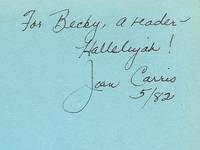 For Becky, a reader-
Hallelujah!
Joan Carris
5/82